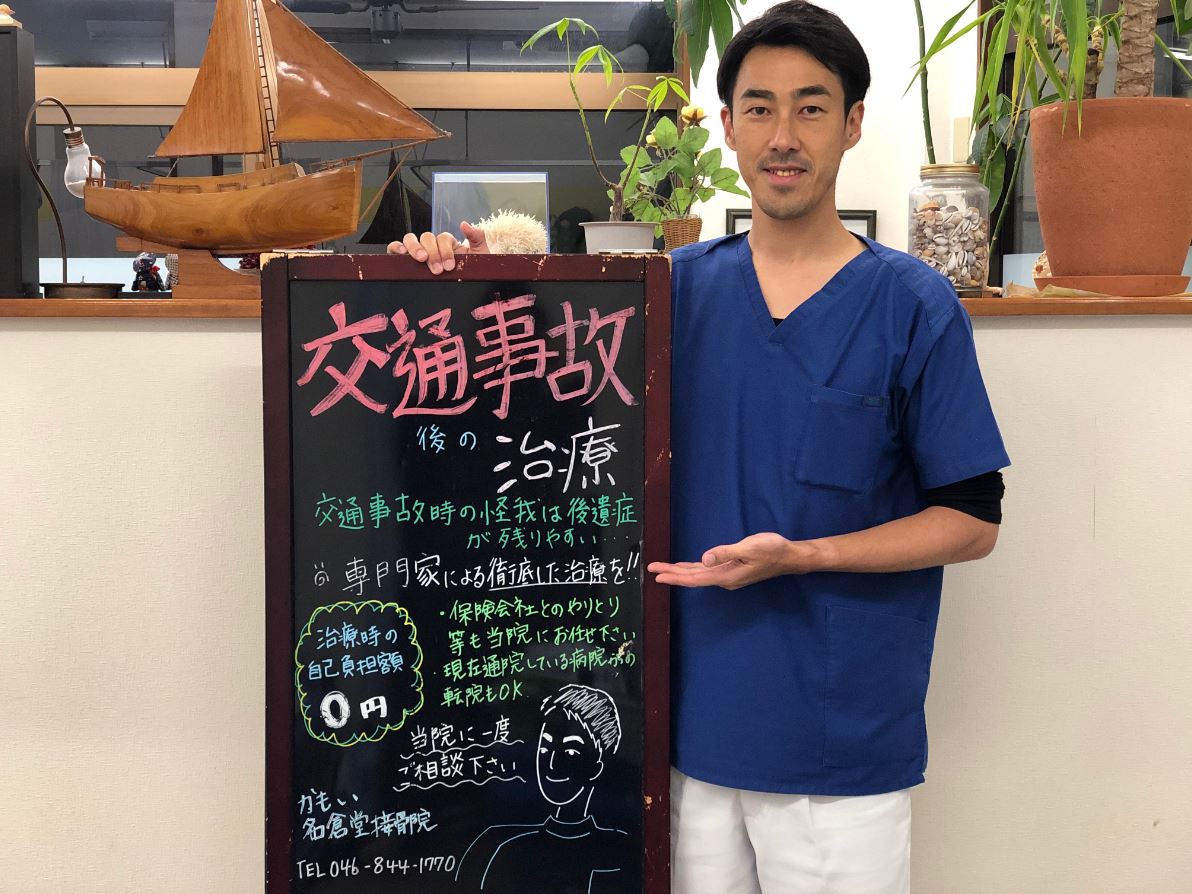 交通事故
後の 治療
交通事故時の怪我は後遺症
が残りやすい…
専門家による徹底した治療を!!
・保険会社とのやりとり
等も当院にお任せ下さい
・現在通院している病院からの
転院もOK
治療時の
自己負担額
0円
当院に一度
ご相談下さい
かもい
名倉堂接骨院
TEL 046-844-1770